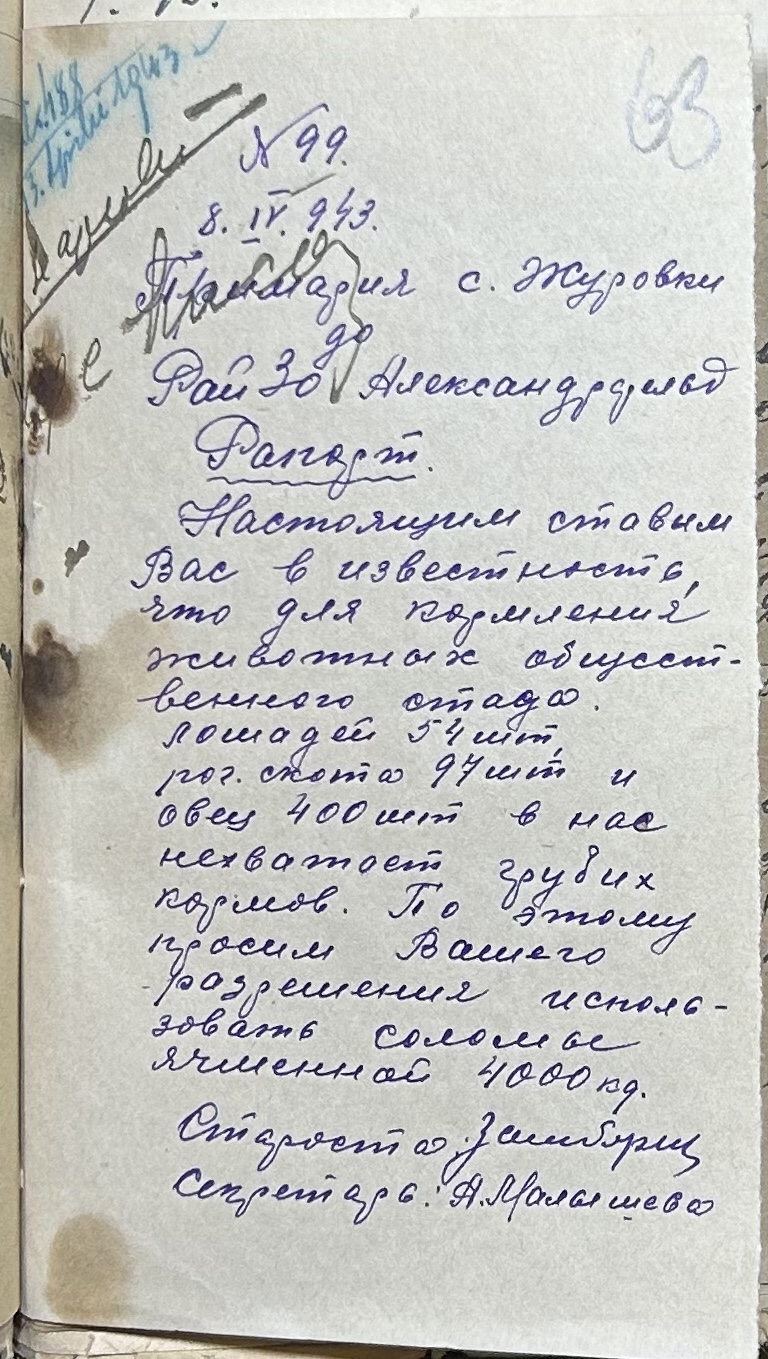 63
№ 99.
8. IV. 943.
Примария с. Журовки
до
РайЗо Александрфельд
Рапорт.
Настоящим ставым
Вас в известность,
что для кормления
животных общест-
венного стада.
лошадей 54 шт,
рог. скота 97 шт и
овец 400 шт в нас
нехватает грубих
кормов. По этому
просим Вашего
разрешения исполь-
зовать соломы
ячменной 4000 кг.
Староста
Секретарь: А. Малышева